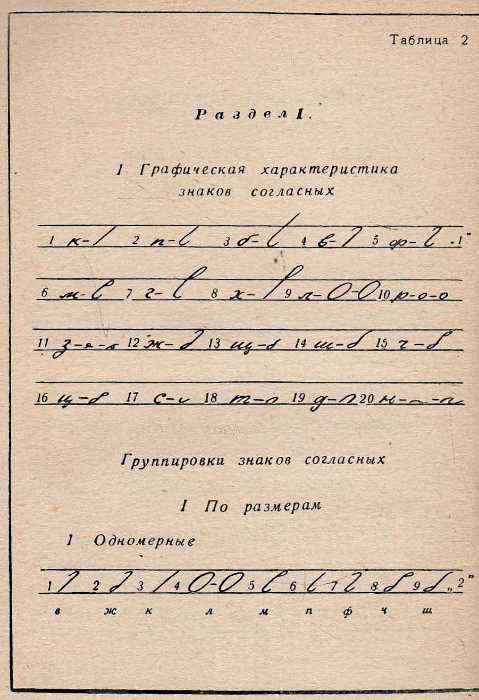 Таблица 2
Раздел I.
1 Графическая характеристика
знаков согласных
1 к- 2 п- 3 б- 4 в- 5 ф- „1"
6 м- 7 г- 8 х- 9 л- 10 р-о-о
11 з- 12 ж- 13 щ- 14 ш- 15 ч-
16 ц- 17 с- 18 т- 19 д- 20 н-
Группировки знаков согласных
I По размерам
1 Одномерные
1 2 3 4 5 6 7 8 9 „2"
в ж к л м п ф ч ш